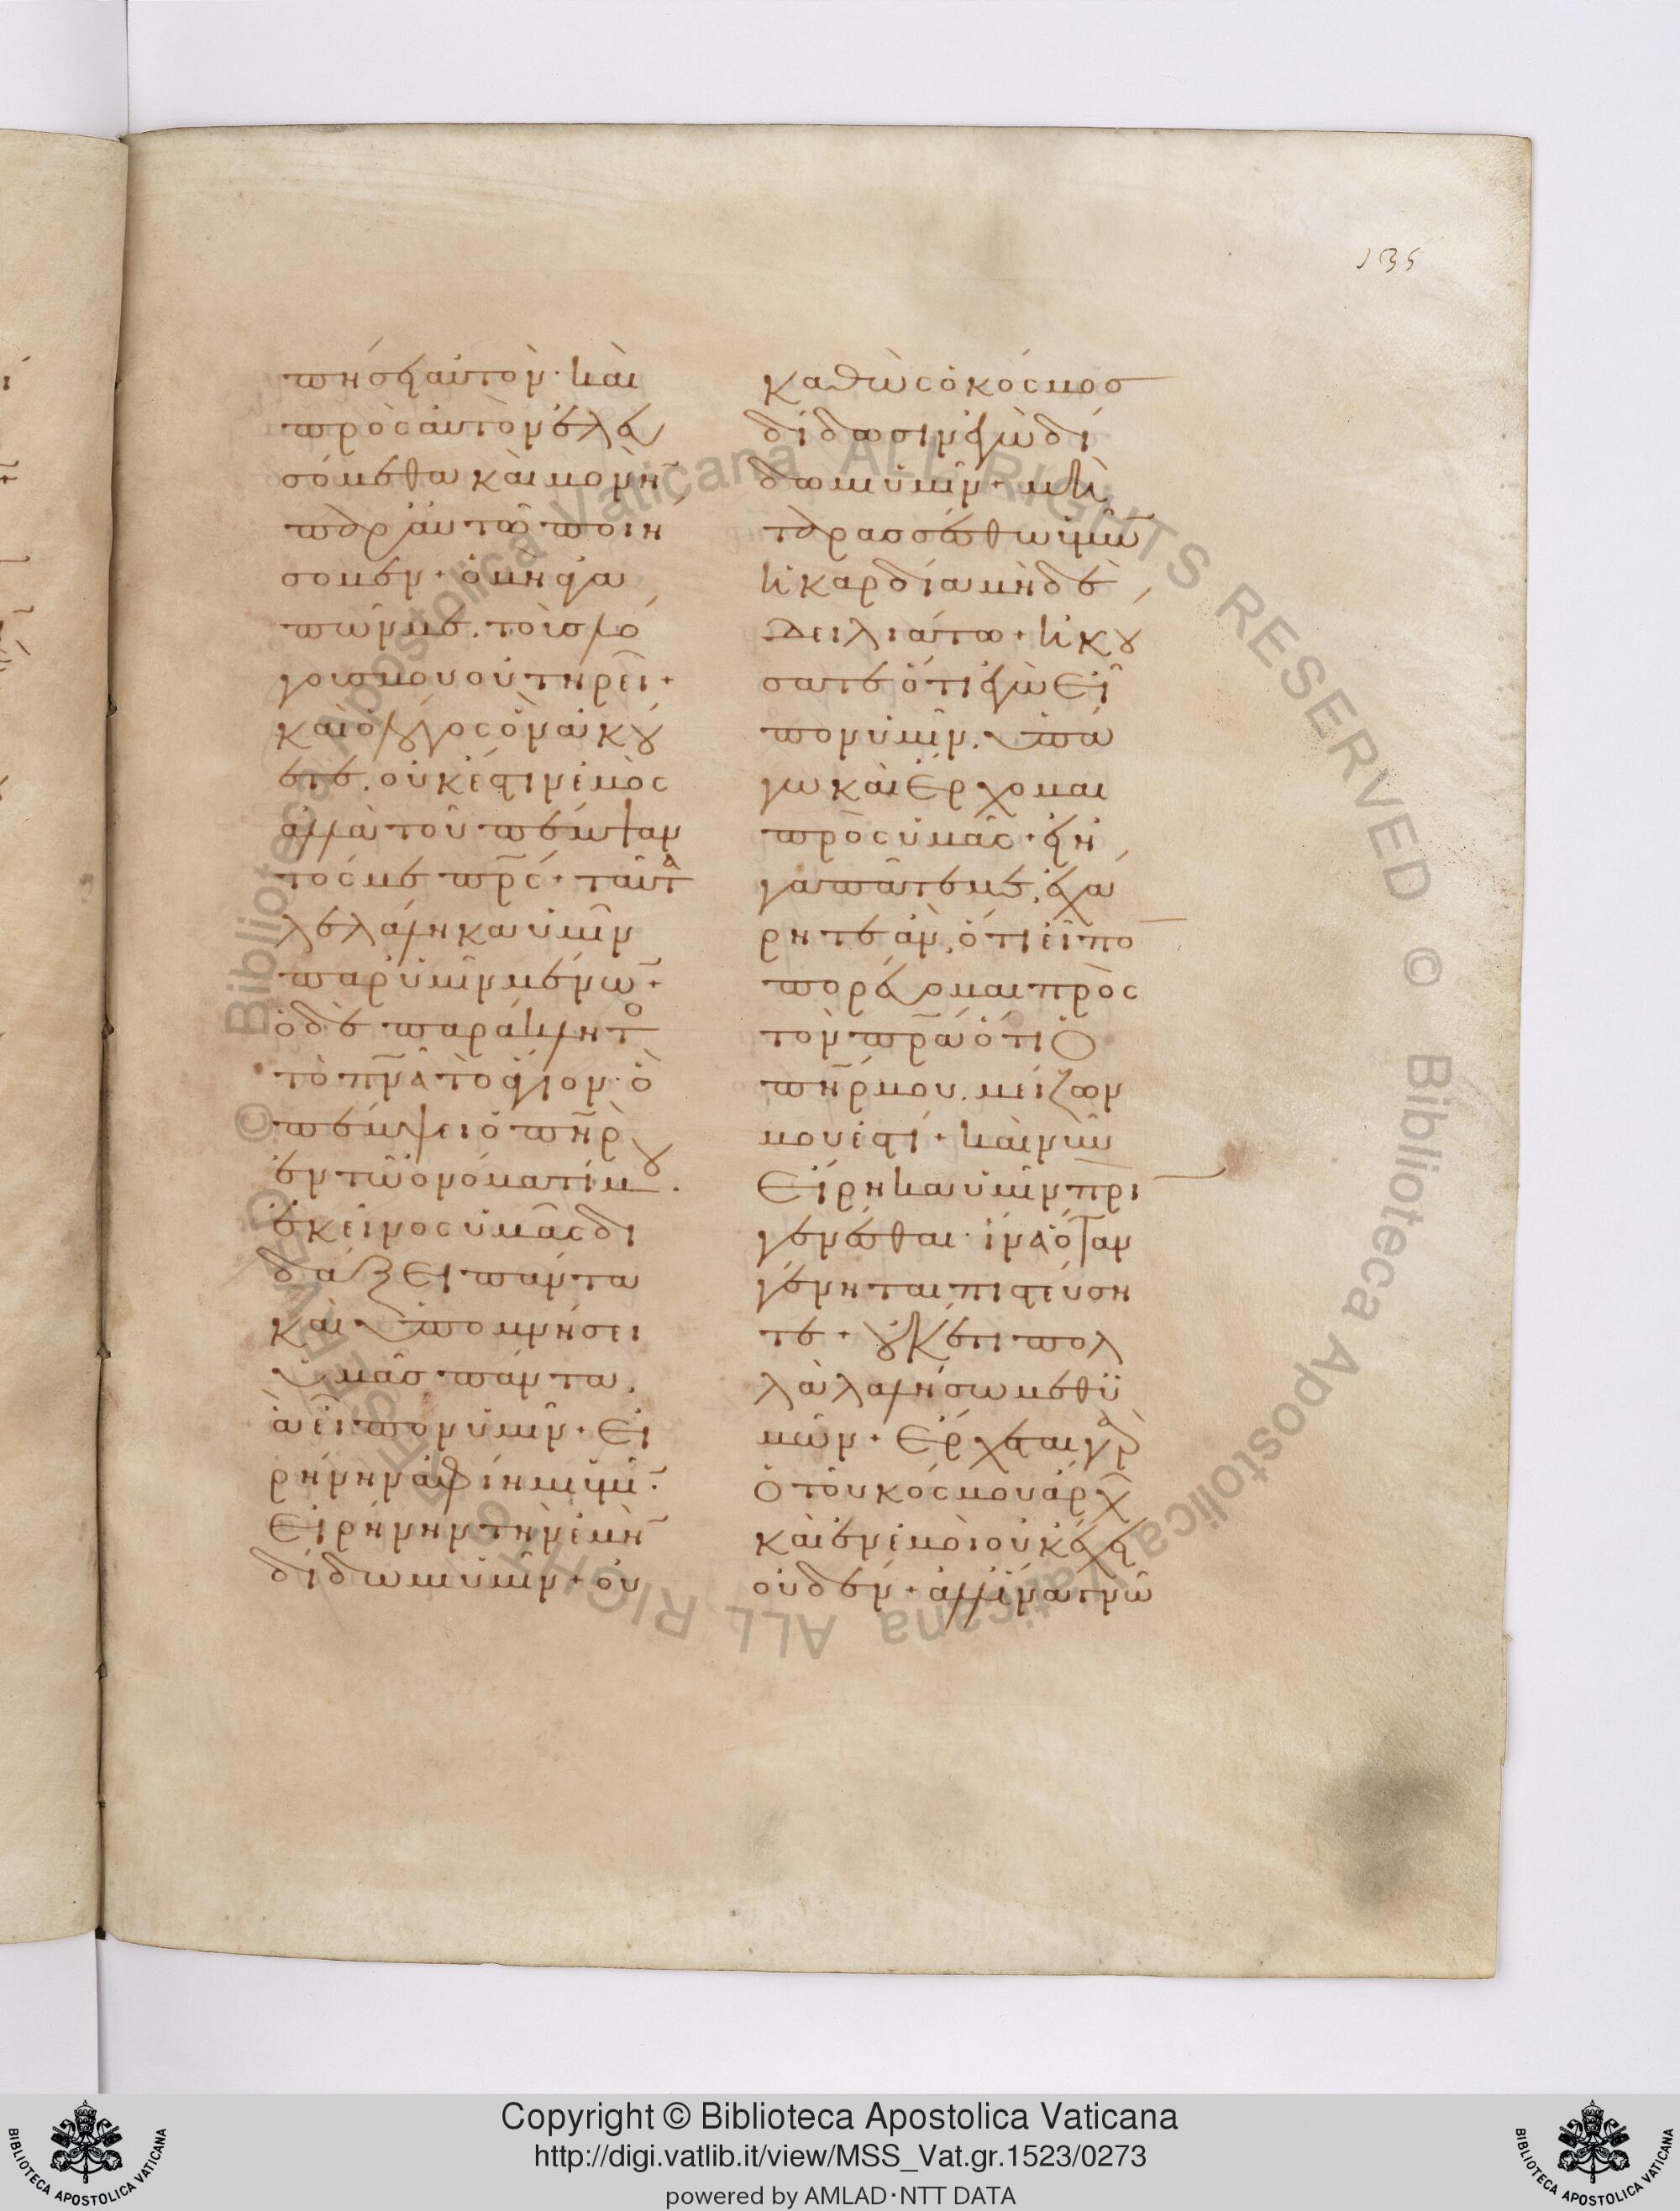 135
πήσει αὐτὸν· καὶ
πρὸς αὐτὸν ἐλευ
σόμεθα καὶ μονὴ̅
παρ' αὐτῶ ποιή
σομεν + ὁ μὴ ἀγα
πῶν με. τοὺς λό
γους μου οὐ τηρεῖ +
καὶ ὁ λόγος ὃν ἀκού
ετε. οὐκ ἔστιν ἐμὸς
ἀλλὰ τοῦ πέμψαν
τός με πρ̅ς + ταῦτα
λελάληκα ὑμῖν
παρ' ὑμῖν μένω̅ +
ὁ δὲ παράκλητο
τὸ πν̅α τὸ ἅγιον· ὃ
πέμψει ὁ πη̅ρ
ἐν τῶ ὀνόματί μου.
ἐκεῖνος ὑμᾶς δι
δάξει πάντα
καὶ ὑπομνήσει
ὑμᾶς πάντα.
ἃ εἶπον ὑμῖν + Εἰ
ρήνην ἀφίημι ὑμῖ̅·
Εἰρήνην τὴν ἐμὴ̅
δίδωμι ὑμῖν + οὐ
καθὼς ὁ κόσμος
δίδωσιν ἐγὼ δί
δωμι ὑμῖν + μὴ
ταρασσέσθω ὑμῶ̅
ἡ καρδία μηδὲ
δειλιάτω + ἠκού
σατε ὅτι ἐγὼ εἶ
πον ὑμῖν. ὑπά
γω καὶ ἔρχομαι
πρὸς ὑμᾶς + εἰ ἠ
γαπᾶτέ με, ἐχά
ρητε ἄν, ὅτι εἶπο̅
πορεύομαι πρὸς
τὸν πρ̅α ὅτι Ὁ
πη̅ρ μου. μείζων
μου ἐστί + καὶ νῦν
Εἴρηκα ὑμῖν πρι̅
γενέσθαι· ἵνα ὅταν
γένηται πιστεύση
τε + οὐκέτι πολ
λὰ λαλήσω μεθ' ὑ
μῶν + Ἔρχεται γὰρ
Ὁ τοῦ κόσμου ἄρχ̅
καὶ ἐν ἐμοὶ οὐκ ἔχει
οὐδέν + ἀλλ' ἵνα γνῶ
Copyright © Biblioteca Apostolica Vaticana
http://digi.vatlib.it/view/MSS_Vat.gr.1523/0273
powered by AMLAD·NTT DATA
BIBLIOTECA APOSTOLICA VATICANA
BIBLIOTECA APOSTOLICA VATICANA
© Biblioteca Apostolica Vaticana ALL RIGHTS RESERVED © Biblioteca Apostolica Vaticana ALL RIGHTS RESERVED